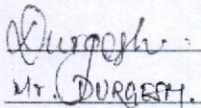 Durgesh
Mr. DURGESH.